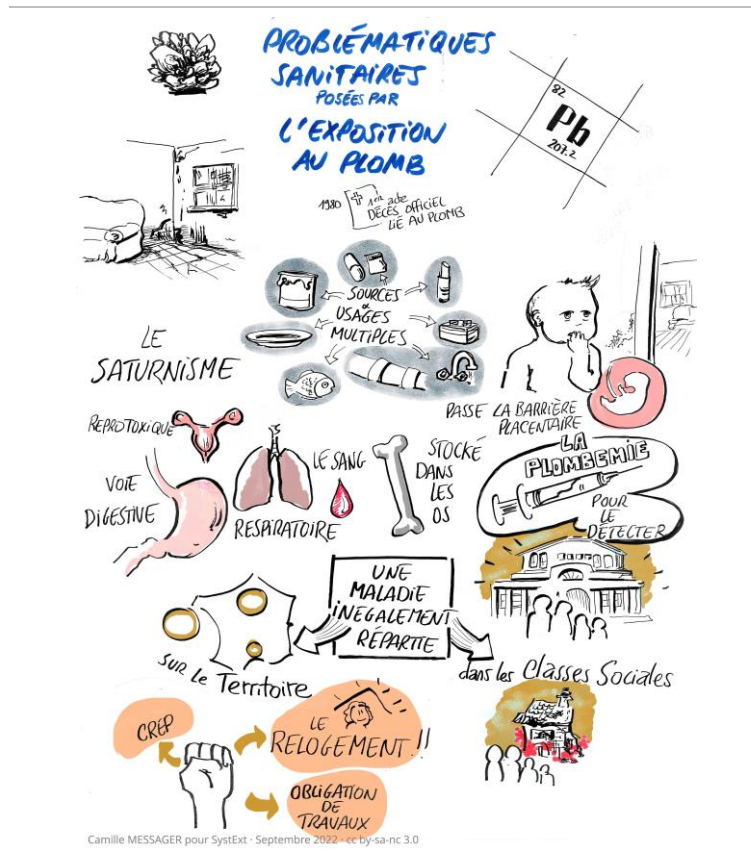 PROBLÉMATIQUES
SANITAIRES
POSÉES PAR
L'EXPOSITION
AU PLOMB
82
Pb
207.2
1980
1er acte
DÉCÈS OFFICIEL
LIÉ AU PLOMB
SOURCES
&
USAGES
MULTIPLES
LE
SATURNISME
PASSE LA BARRIÈRE
PLACENTAIRE
REPROTOXIQUE
VOIE
DIGESTIVE
RESPIRATOIRE
LE SANG
STOCKÉ
DANS
LES
OS
LA
PLOMBEMIE
POUR
LE
DÉTECTER
UNE
MALADIE
INEGALEMENT
RÉPARTIE
sur le Territoire
dans les Classes Sociales
CREP
LE
RELOGEMENT!!
OBLIGATION
DE
TRAVAUX
Camille MESSAGER pour SystExt - Septembre 2022 - cc by-sa-nc 3.0